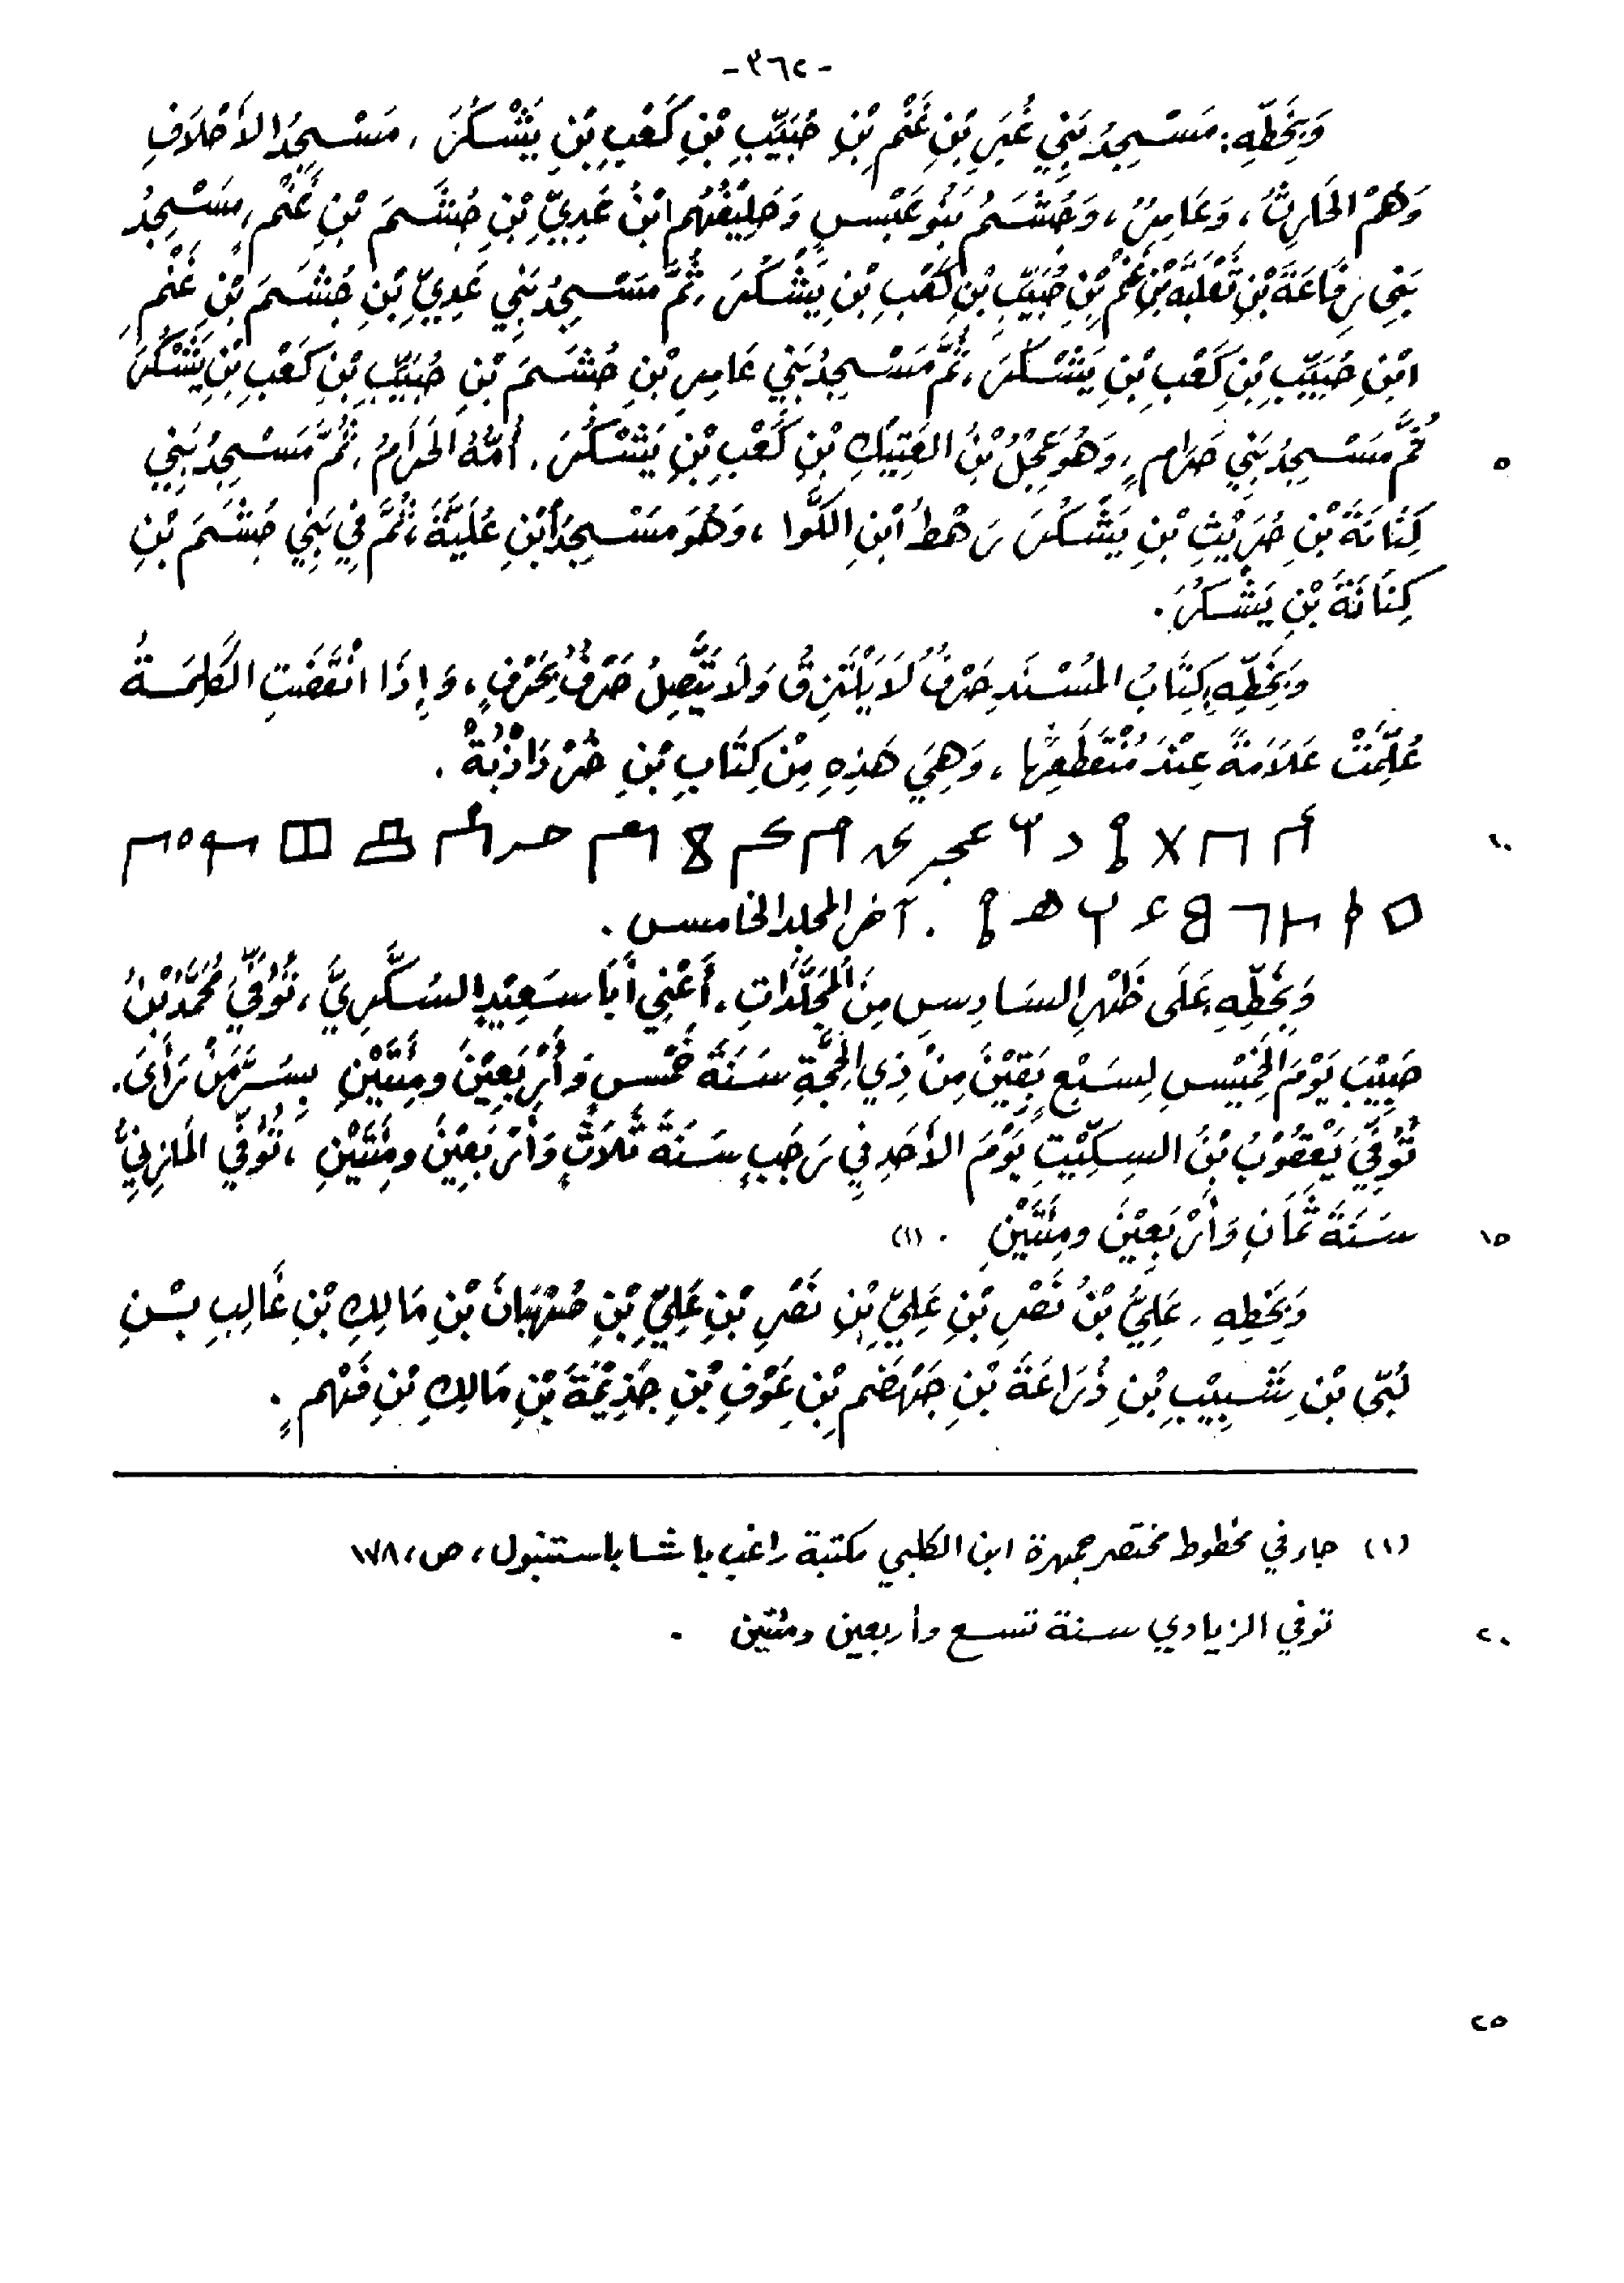 -٣٦٢-
وَبِخَطِّهِ: مَسْجِدُ بَنِي غُبَرِ بْنِ غَنْمِ بْنِ حُبَيِّبِ بْنِ كَعْبِ بْنِ يَشْكُرَ، مَسْجِدُ الأَحْلَافِ
وَهُمْ الحَارِثُ، وَعَامِرٌ، وَجُشَمُ بَنُو عَبْسٍ وَحَلِيْفُهُم ابْنُ عَدِيِّ بْنِ جُشَمَ بْنِ غَنْمٍ، مَسْجِدُ
بَنِي رِفَاعَةَ بْنِ ثَعْلَبَةَ بْنِ غَنْمِ بْنِ حُبَيِّبِ بْنِ كَعْبِ بْنِ يَشْكُرَ، ثُمَّ مَسْجِدُ بَنِي عَدِيِّ بْنِ جُشَمَ بْنِ غَنْمِ
ابْنِ حُبَيِّبِ بْنِ كَعْبِ بْنِ يَشْكُرَ، ثُمَّ مَسْجِدُ بَنِي عَامِرِ بْنِ جُشَمَ بْنِ حُبَيِّبِ بْنِ كَعْبِ بْنِ يَشْكُرَ
ثُمَّ مَسْجِدُ بَنِي حَرَامٍ، وَهُوَ عِجْلُ بْنُ العَتِيْكِ بْنِ كَعْبِ بْنِ يَشْكُرَ. أُمُّهُ الحَرَامُ، ثُمَّ مَسْجِدُ بَنِي ٥
كِنَانَةَ بْنِ حُرَيْثِ بْنِ يَشْكُرَ رَهْطُ ابْنِ الكَوَّا، وَهُوَ مَسْجِدُ ابْنِ عُلَيَّةَ، ثُمَّ فِي بَنِي جُشَمَ بْنِ
كِنَانَةَ بْنِ يَشْكُرَ.
وَبِخَطِّهِ، كِتَابُ المُسْنَدِ حَرْفٌ لَا يَلْتَزِقُ وَلَا يَتَّصِلُ حَرْفٌ بِحَرْفٍ، وَإِذَا انْقَضَتِ الكَلِمَةُ
عُلِّمَتْ عَلَامَةً عِنْدَ مُنْقَطَعِهَا، وَهِيَ هَذِهِ مِنْ كِتَابِ بْنِ خُرْدَاذْبَةْ.
١٠
. آخر المجلد الخامس.
وَبِخَطِّهِ عَلَى ظَهْرِ السَادِسِ مِنَ المُجَلَّدَاتِ، أَعْنِي أَبَا سَعِيْدٍ السُكَّرِيَّ، تُوُفِّيَ مُحَمَّدُ بْنُ
حَبِيْبَ يَوْمَ الخَمِيْسِ لِسَبْعٍ بَقِيْنَ مِنْ ذِي الحِجَّةِ سَنَةَ خَمْسٍ وَأَرْبَعِيْنَ ومِئَتَيْنِ بِسَرَّ مَنْ رَأَى.
تُوُفِّيَ يَعْقُوْبُ بْنُ السِكِّيْتِ يَوْمَ الأَحَدِ فِي رَجَبٍ سَنَةَ ثَلَاثٍ وَأَرْبَعِيْنَ ومِئَتَيْنِ، تُوُفِّيَ المَازِنِيُّ
سَنَةَ ثَمَانٍ وَأَرْبَعِيْنَ ومِئَتَيْنِ. (١) ١٥
وَبِخَطِهِ، عَلِيُّ بْنُ نَصْرِ بْنِ عَلِيِّ بْنِ نَصْرِ بْنِ عَلِيِّ بْنِ صُهْبَانَ بْنِ مَالِكِ بْنِ غَالِبِ بْنِ
لُبَّى بْنِ شَبِيْبِ بْنِ ذُرَاعَةَ بْنِ جَهْضَمِ بْنِ عَوْفِ بْنِ جَذِيْمَةَ بْنِ مَالِكِ بْنِ فَهْمٍ.
(١) جاء في مخطوط مختصر جمهرة ابن الكلبي مكتبة راغب باشا باستنبول، ص، ١٧٨
توفي الزيادي سنة تسع وأربعين ومئتين. ٢٠
٢٥